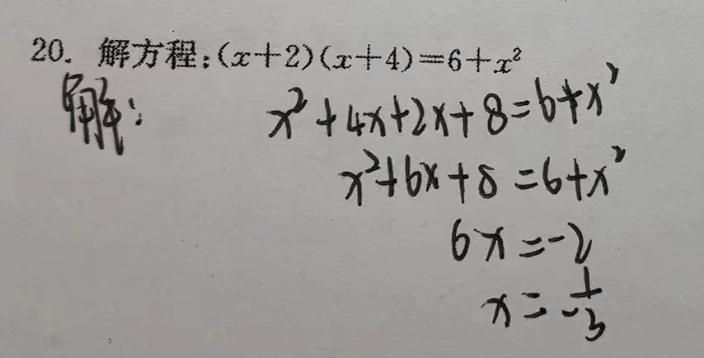 20. 解方程:(x+2)(x+4)=6+x²
解: x²+4x+2x+8=6+x²
x²+6x+8=6+x²
6x=-2
x=-1/3